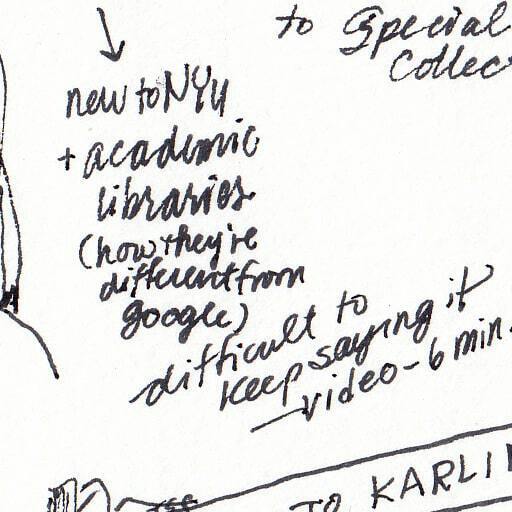 to Special
Collec
new to NYU
+ academic
libraries
(how they're
different from
google)
difficult to
keep saying it
—video - 6 min.
TO KARLI